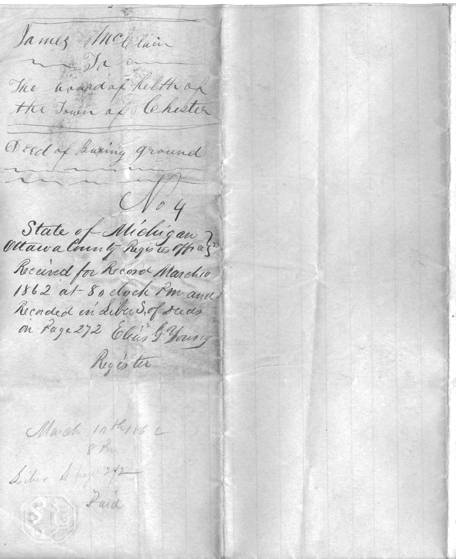 James McClain
To
The board of helth of
the Town of Chester
Deed of Buring ground
No 4
State of Michigan
Ottawa County Register Office } ss
Received for Record March 10
1862 at 8 o clock Pm and
Recorded in Liber S. of deeds
on Page 272 Elias G Young
Register
March 10th 1862
8 Pm
Liber S page 272
Paid